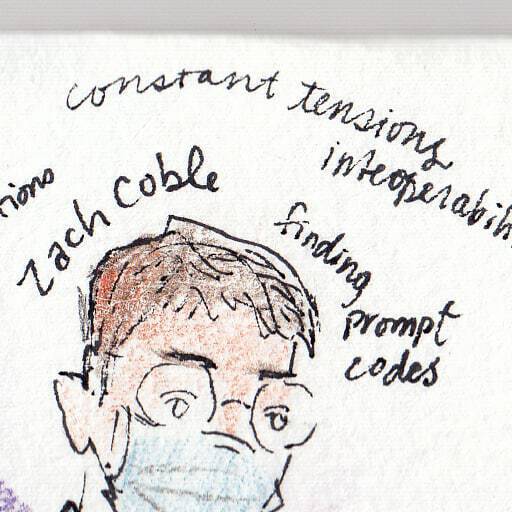 constant tensions
interoperabili
tions
Zach Coble
finding
prompt
codes